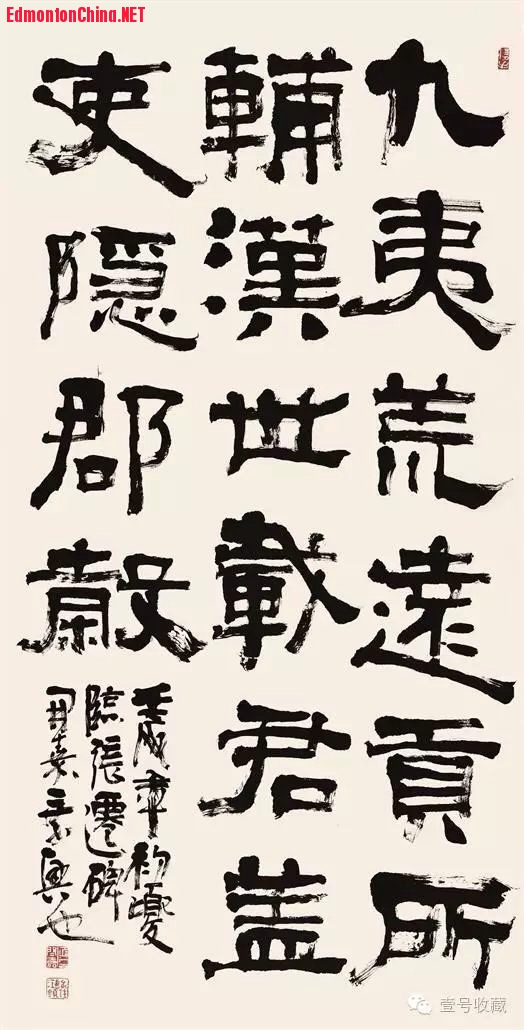 EdmontonChina.NET
九夷荒遠貢所
輔漢世載君盖
吏隱郡
壬戌年初夏
臨張遷碑
興也
壹号收藏